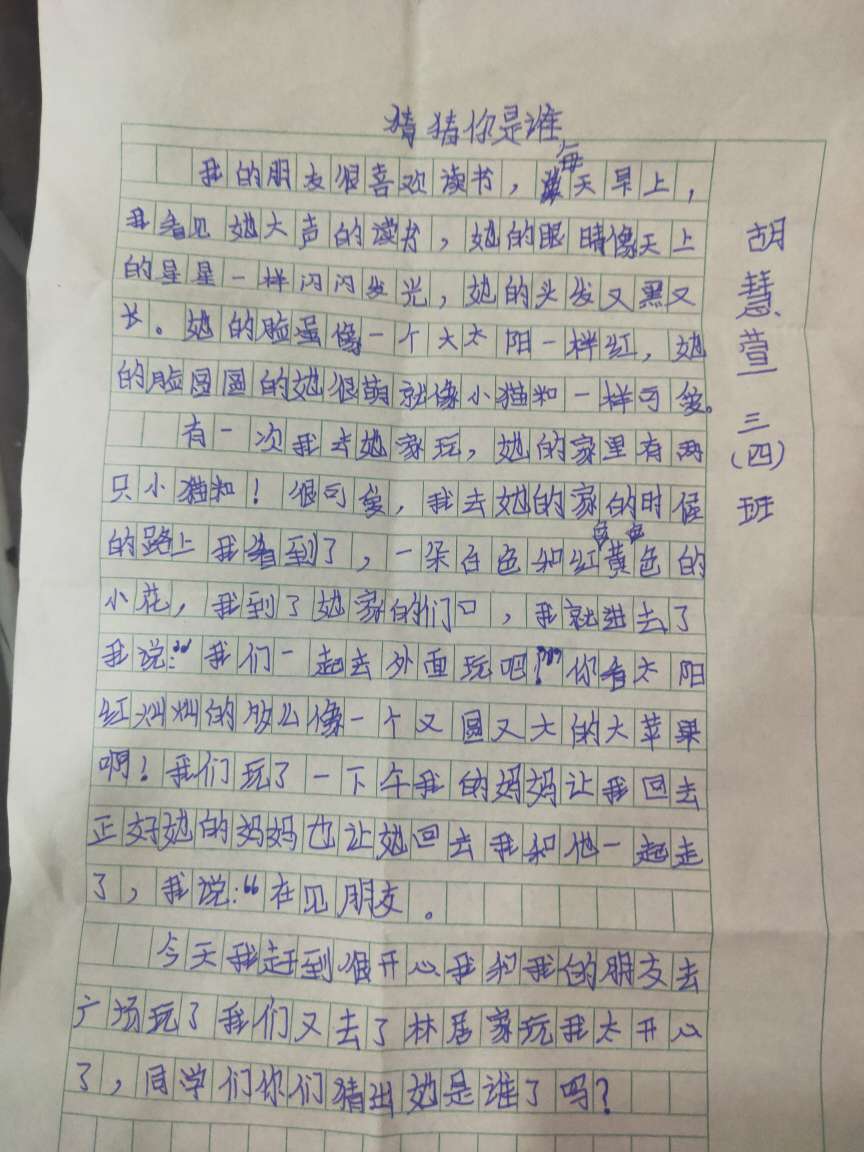 猜猜你是谁
我的朋友很喜欢读书，每天早上，
我看见她大声的读书，她的眼睛像天上
的星星一样闪闪发光，她的头发又黑又
长。她的脸蛋像一个大太阳一样红，她
的脸圆圆的她很萌就像小猫和一样可爱。
有一次我去她家玩，她的家里有两
只小猫和！很可爱，我去她的家的时候
的路上我看到了，一朵白色和红色黄色的
小花，我到了她家的们口，我就进去了
我说：“我们一起去外面玩吧！”你看太阳
红灿灿的多么像一个又圆又大的大苹果
啊！我们玩了一下午我的妈妈让我回去
正好她的妈妈也让她回去我和他一起走
了，我说：“在见朋友。
今天我赶到很开心我和我的朋友去
广场玩了我们又去了林居家玩我太开心
了，同学们你们猜出她是谁了吗？
胡慧萱 三（四）班